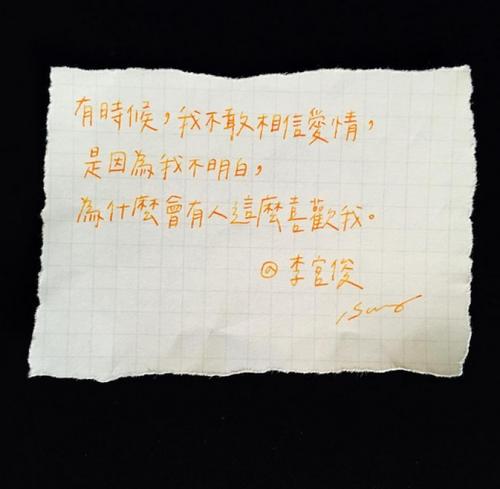 有時候，我不敢相信愛情，
是因為我不明白，
為什麼會有人這麼喜歡我。
@李宮俊